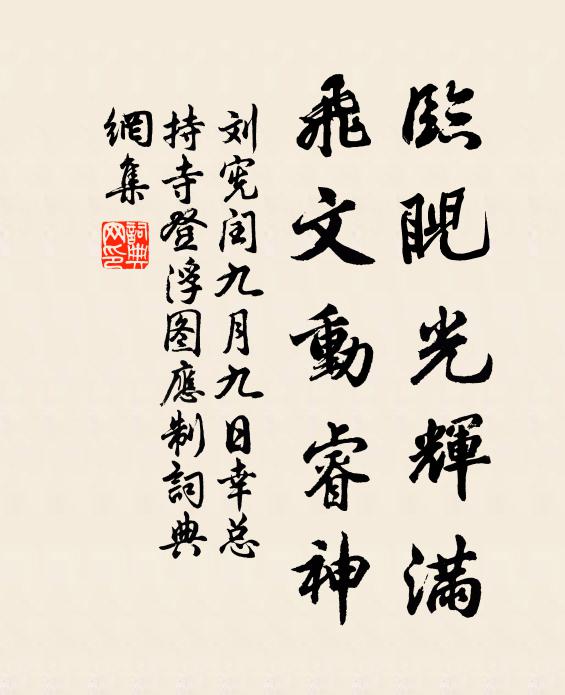 臨睨光輝滿
飛文動睿神
刘宪闰九月九日幸总
持寺登浮图應制詞典
網集
詞典网印